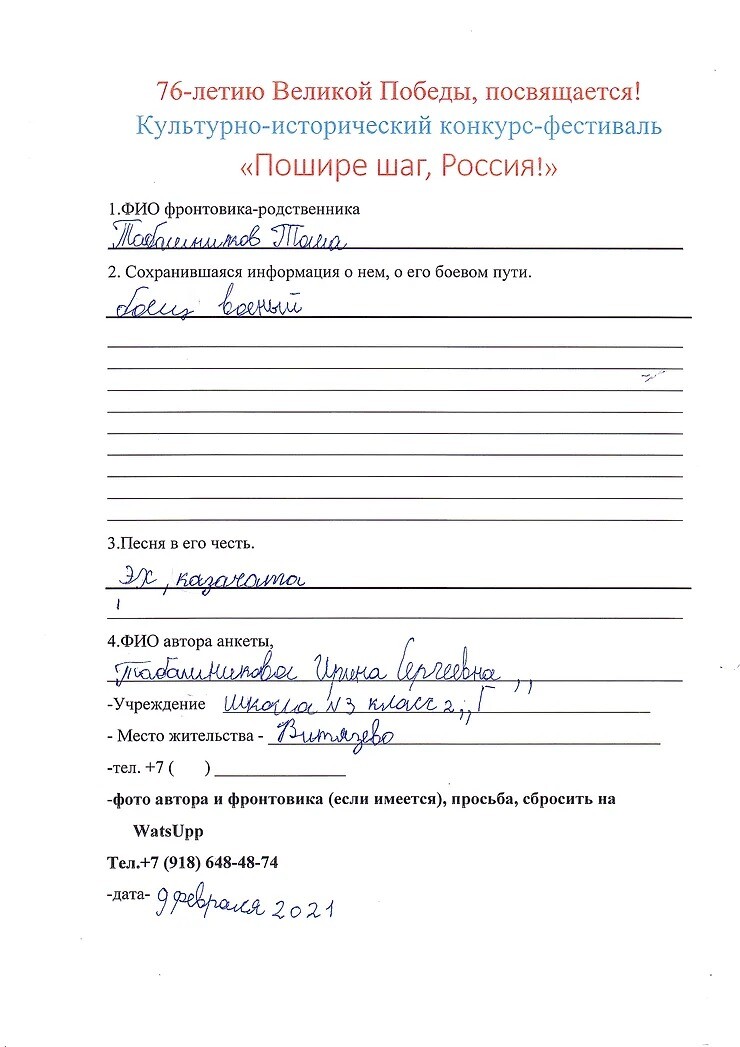 76-летию Великой Победы, посвящается!
Культурно-исторический конкурс-фестиваль
«Пошире шаг, Россия!»
1.ФИО фронтовика-родственника
2. Сохранившаяся информация о нем, о его боевом пути.
боец военый
3.Песня в его честь.
Эх, казачата
4.ФИО автора анкеты,
Ирина Сергеевна
-Учреждение Школа N3 класс 2 „Г"
- Место жительства - Витязево
-тел. +7 ( )
-фото автора и фронтовика (если имеется), просьба, сбросить на
WatsUpp
Тел.+7 (918) 648-48-74
-дата- 9 февраля 2021